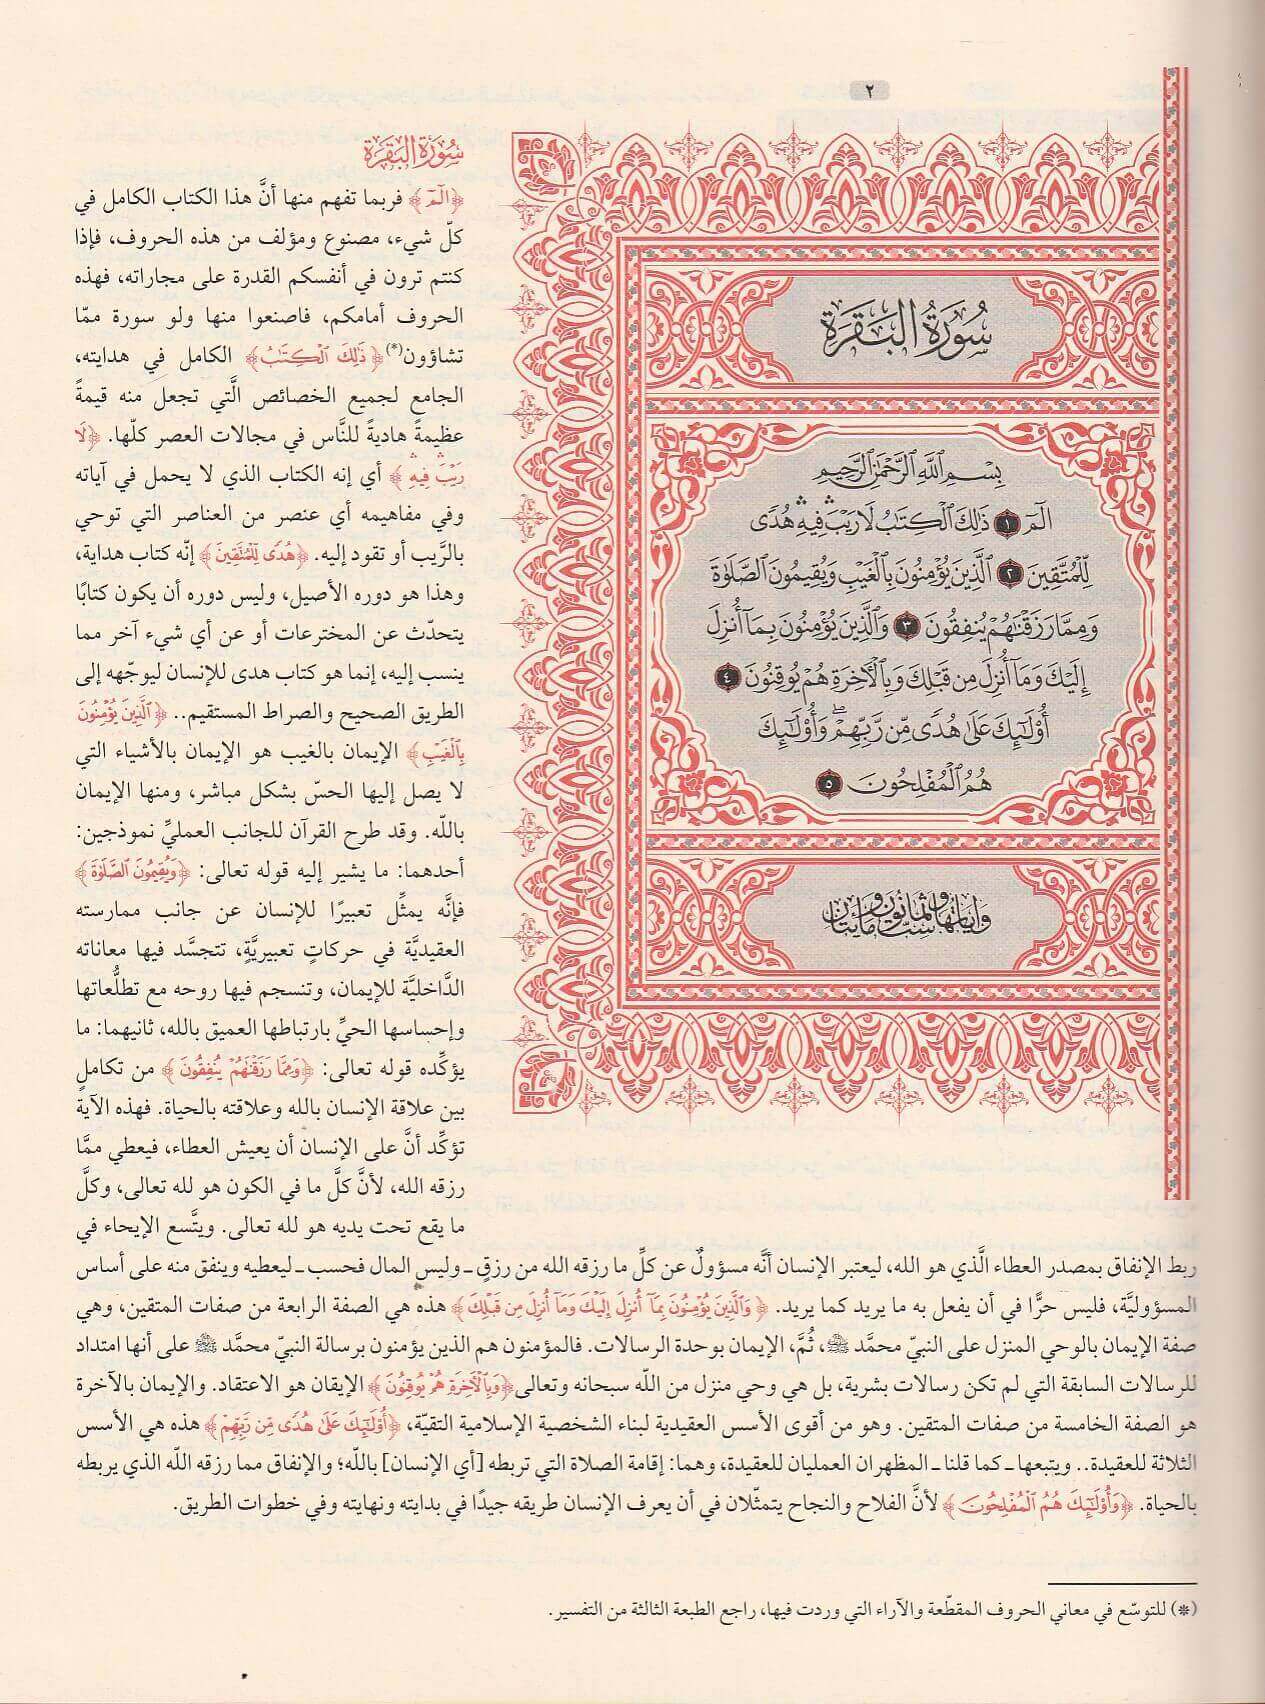 ٢
سُورَةُ البَقَرَة
بِسْمِ اللَّهِ الرَّحْمَٰنِ الرَّحِيمِ
الٓمٓ ١ ذَٰلِكَ ٱلْكِتَٰبُ لَا رَيْبَ ۛ فِيهِ ۛ هُدًى
لِّلْمُتَّقِينَ ٢ ٱلَّذِينَ يُؤْمِنُونَ بِٱلْغَيْبِ وَيُقِيمُونَ ٱلصَّلَوٰةَ
وَمِمَّا رَزَقْنَٰهُمْ يُنفِقُونَ ٣ وَٱلَّذِينَ يُؤْمِنُونَ بِمَآ أُنزِلَ
إِلَيْكَ وَمَآ أُنزِلَ مِن قَبْلِكَ وَبِٱلْأٓخِرَةِ هُمْ يُوقِنُونَ ٤
أُو۟لَٰٓئِكَ عَلَىٰ هُدًى مِّن رَّبِّهِمْ ۖ وَأُو۟لَٰٓئِكَ
هُمُ ٱلْمُفْلِحُونَ ٥
وآياتها ست وثمانون ومايتان
سُورَةُ البَقَرَة
﴿الٓمٓ﴾ فربما تفهم منها أنَّ هذا الكتاب الكامل في
كلّ شيء، مصنوع ومؤلف من هذه الحروف، فإذا
كنتم ترون في أنفسكم القدرة على مجاراته، فهذه
الحروف أمامكم، فاصنعوا منها ولو سورة ممّا
تشاؤون(*) ﴿ذَٰلِكَ ٱلْكِتَٰبُ﴾ الكامل في هدايته،
الجامع لجميع الخصائص الَّتي تجعل منه قيمةً
عظيمةً هاديةً للنَّاس في مجالات العصر كلّها. ﴿لَا
رَيْبَ ۛ فِيهِ ۛ﴾ أي إنه الكتاب الذي لا يحمل في آياته
وفي مفاهيمه أي عنصر من العناصر التي توحي
بالرَّيب أو تقود إليه. ﴿هُدًى لِّلْمُتَّقِينَ﴾ إنّه كتاب هداية،
وهذا هو دوره الأصيل، وليس دوره أن يكون كتابًا
يتحدّث عن المخترعات أو عن أي شيء آخر مما
ينسب إليه، إنما هو كتاب هدى للإنسان ليوجّهه إلى
الطريق الصحيح والصراط المستقيم.. ﴿ٱلَّذِينَ يُؤْمِنُونَ
بِٱلْغَيْبِ﴾ الإيمان بالغيب هو الإيمان بالأشياء التي
لا يصل إليها الحسّ بشكل مباشر، ومنها الإيمان
باللّه. وقد طرح القرآن للجانب العمليِّ نموذجين:
أحدهما: ما يشير إليه قوله تعالى: ﴿وَيُقِيمُونَ ٱلصَّلَوٰةَ﴾
فإنَّه يمثِّل تعبيرًا للإنسان عن جانب ممارسته
العقيديَّة في حركاتٍ تعبيريَّةٍ، تتجسَّد فيها معاناته
الدَّاخليَّة للإيمان، وتنسجم فيها روحه مع تطلُّعاتها
وإحساسها الحيِّ بارتباطها العميق بالله، ثانيهما: ما
يؤكِّده قوله تعالى: ﴿وَمِمَّا رَزَقْنَٰهُمْ يُنفِقُونَ﴾ من تكاملٍ
بين علاقة الإنسان بالله وعلاقته بالحياة. فهذه الآية
تؤكِّد أنَّ على الإنسان أن يعيش العطاء، فيعطي ممَّا
رزقه الله، لأنَّ كلَّ ما في الكون هو لله تعالى، وكلَّ
ما يقع تحت يديه هو لله تعالى. ويتَّسع الإيحاء في
ربط الإنفاق بمصدر العطاء الَّذي هو الله، ليعتبر الإنسان أنَّه مسؤولٌ عن كلِّ ما رزقه الله من رزقٍ ـ وليس المال فحسب ـ ليعطيه وينفق منه على أساس
المسؤوليَّة، فليس حرًّا في أن يفعل به ما يريد كما يريد. ﴿وَٱلَّذِينَ يُؤْمِنُونَ بِمَآ أُنزِلَ إِلَيْكَ وَمَآ أُنزِلَ مِن قَبْلِكَ﴾ هذه هي الصفة الرابعة من صفات المتقين، وهي
صفة الإيمان بالوحي المنزل على النبيّ محمَّد ﷺ، ثُمَّ، الإيمان بوحدة الرسالات. فالمؤمنون هم الذين يؤمنون برسالة النبيّ محمَّد ﷺ على أنها امتداد
للرسالات السابقة التي لم تكن رسالات بشرية، بل هي وحي منزل من اللّه سبحانه وتعالى ﴿وَبِٱلْأٓخِرَةِ هُمْ يُوقِنُونَ﴾ الإيقان هو الاعتقاد. والإيمان بالآخرة
هو الصفة الخامسة من صفات المتقين. وهو من أقوى الأسس العقيدية لبناء الشخصية الإسلامية التقيّة، ﴿أُو۟لَٰٓئِكَ عَلَىٰ هُدًى مِّن رَّبِّهِمْ﴾ هذه هي الأسس
الثلاثة للعقيدة.. ويتبعها ـ كما قلنا ـ المظهران العمليان للعقيدة، وهما: إقامة الصلاة التي تربطه [أي الإنسان] باللّه؛ والإنفاق مما رزقه اللّه الذي يربطه
بالحياة. ﴿وَأُو۟لَٰٓئِكَ هُمُ ٱلْمُفْلِحُونَ﴾ لأنَّ الفلاح والنجاح يتمثّلان في أن يعرف الإنسان طريقه جيدًا في بدايته ونهايته وفي خطوات الطريق.
(*) للتوسّع في معاني الحروف المقطّعة والآراء التي وردت فيها، راجع الطبعة الثالثة من التفسير.